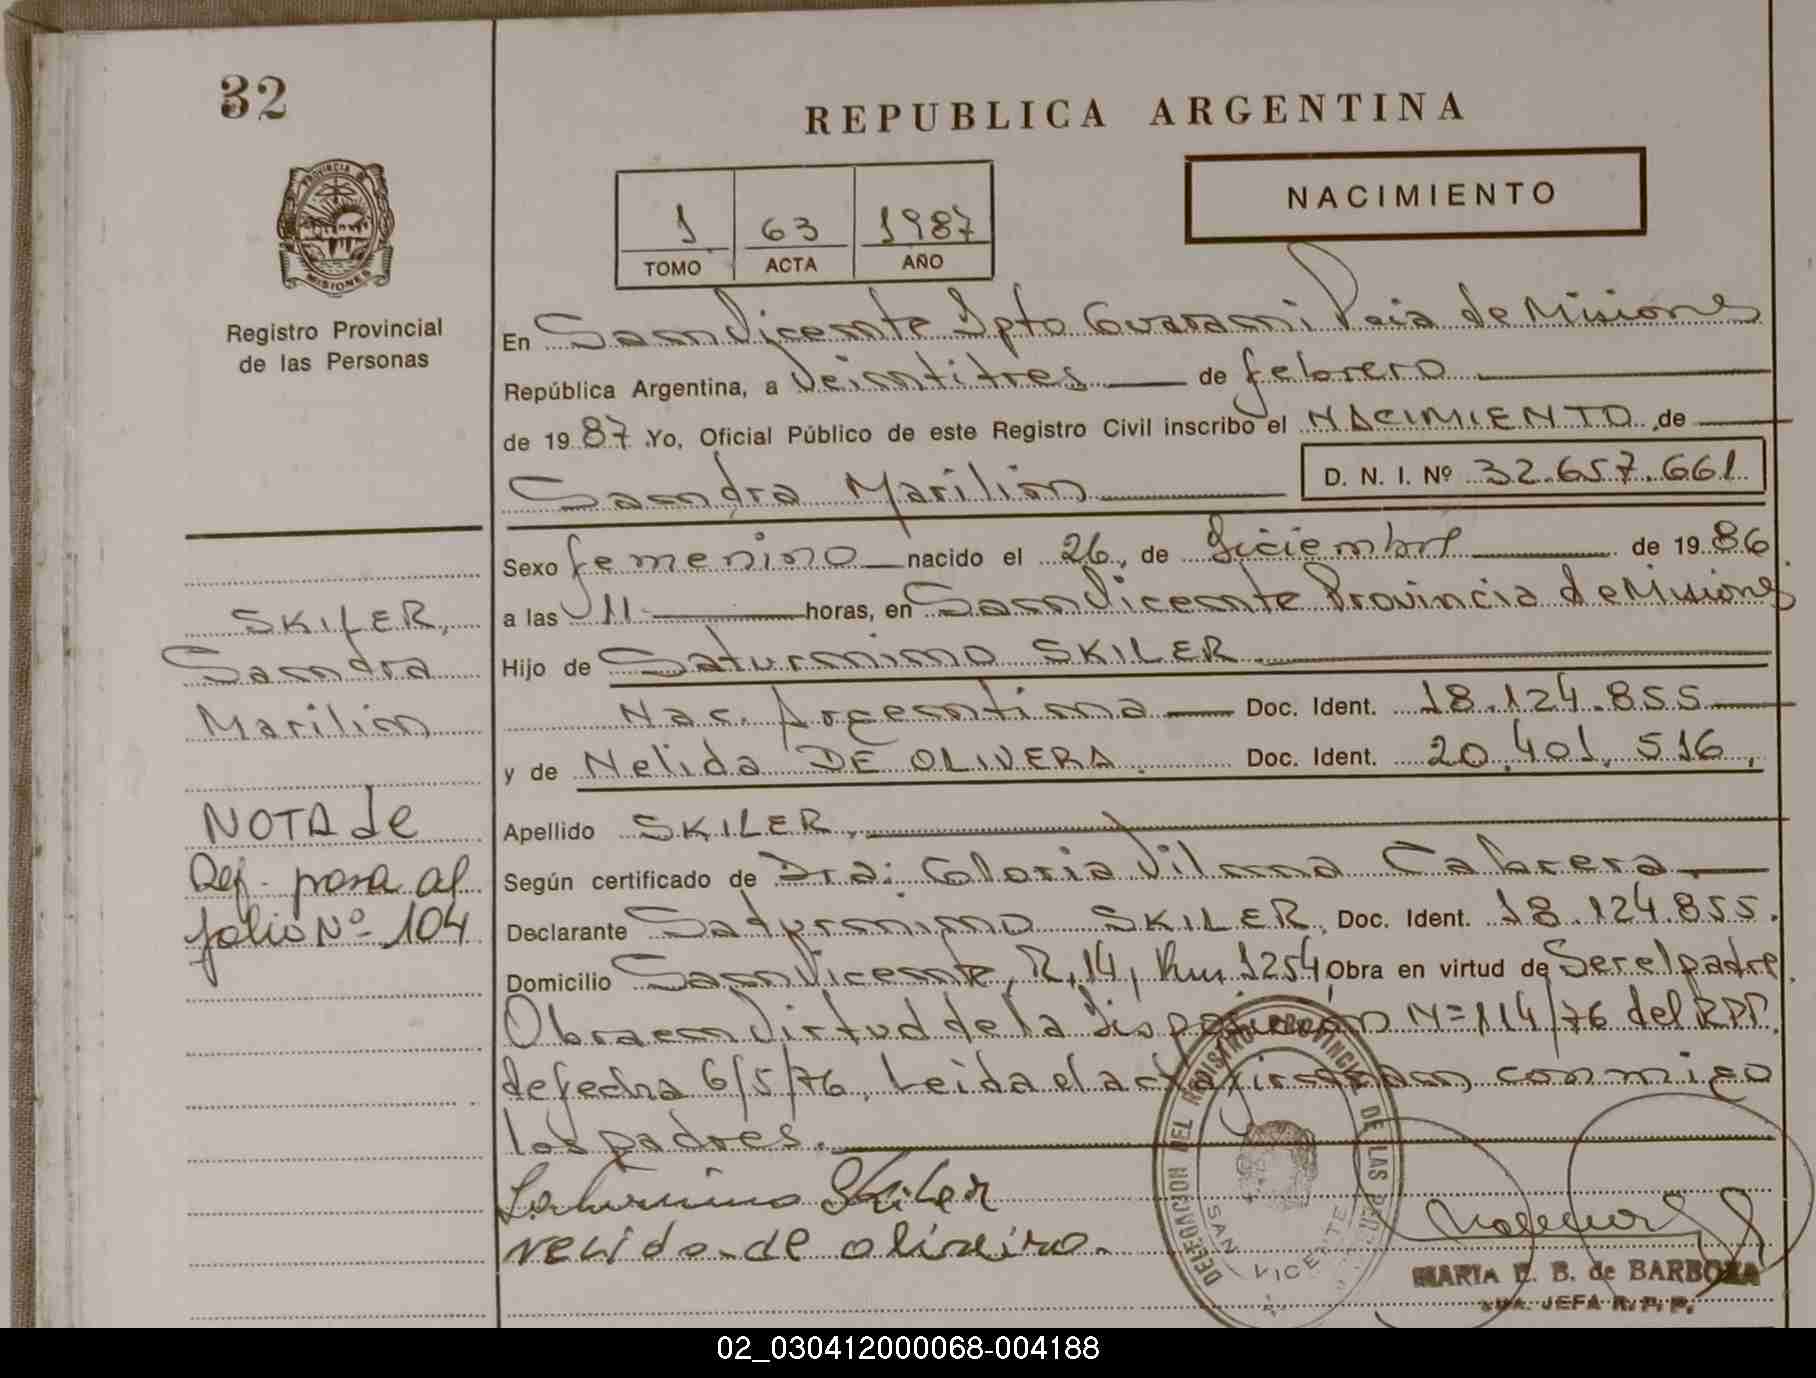 32
REPUBLICA ARGENTINA
PROVINCIA DE
MISIONES
Registro Provincial
de las Personas
1 63 1987
TOMO ACTA AÑO
NACIMIENTO
En San Vicente Dpto Guarani Pcia de Misiones
República Argentina, a Veintitres de febrero
de 1987 Yo, Oficial Público de este Registro Civil inscribo el NACIMIENTO de
Sandra Marilin D. N. I. Nº 32.657.661
Sexo femenino nacido el 26, de Diciembre de 1986
a las 11 horas, en San Vicente Provincia de Misiones
Hijo de Saturnino SKILER
Nac. Argentina Doc. Ident. 18.124.855
y de Nelida DE OLIVERA. Doc. Ident. 20.401.516,
Apellido SKILER,
Según certificado de Dra: Gloria Vilma Cabrera
Declarante Saturnino SKILER, Doc. Ident. 18.124.855.
Domicilio San Vicente, R, 14, Km 1254, Obra en virtud de Ser el padre.
Obra en Virtud de la Disposición Nº 114/76 del RPP.
de fecha 6/5/76, Leida el acta firman conmigo
los padres.
Saturnino Skiler
Nelida de oliveira.
SKILER,
Sandra
Marilin
NOTA de
Ref. pasa al
folio Nº 104
DELEGACION DEL REGISTRO PROVINCIAL DE LAS PERSONAS
SAN VICENTE
MARIA E. B. de BARBOZA
JEFA R. P. P.
02_030412000068-004188